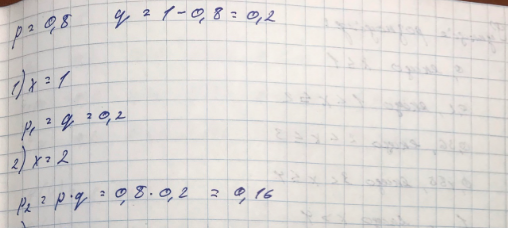 p = 0,8 q = 1 - 0,8 = 0,2
1) x = 1
p₁ = q = 0,2
2) x = 2
p₂ = p · q = 0,8 · 0,2 = 0,16